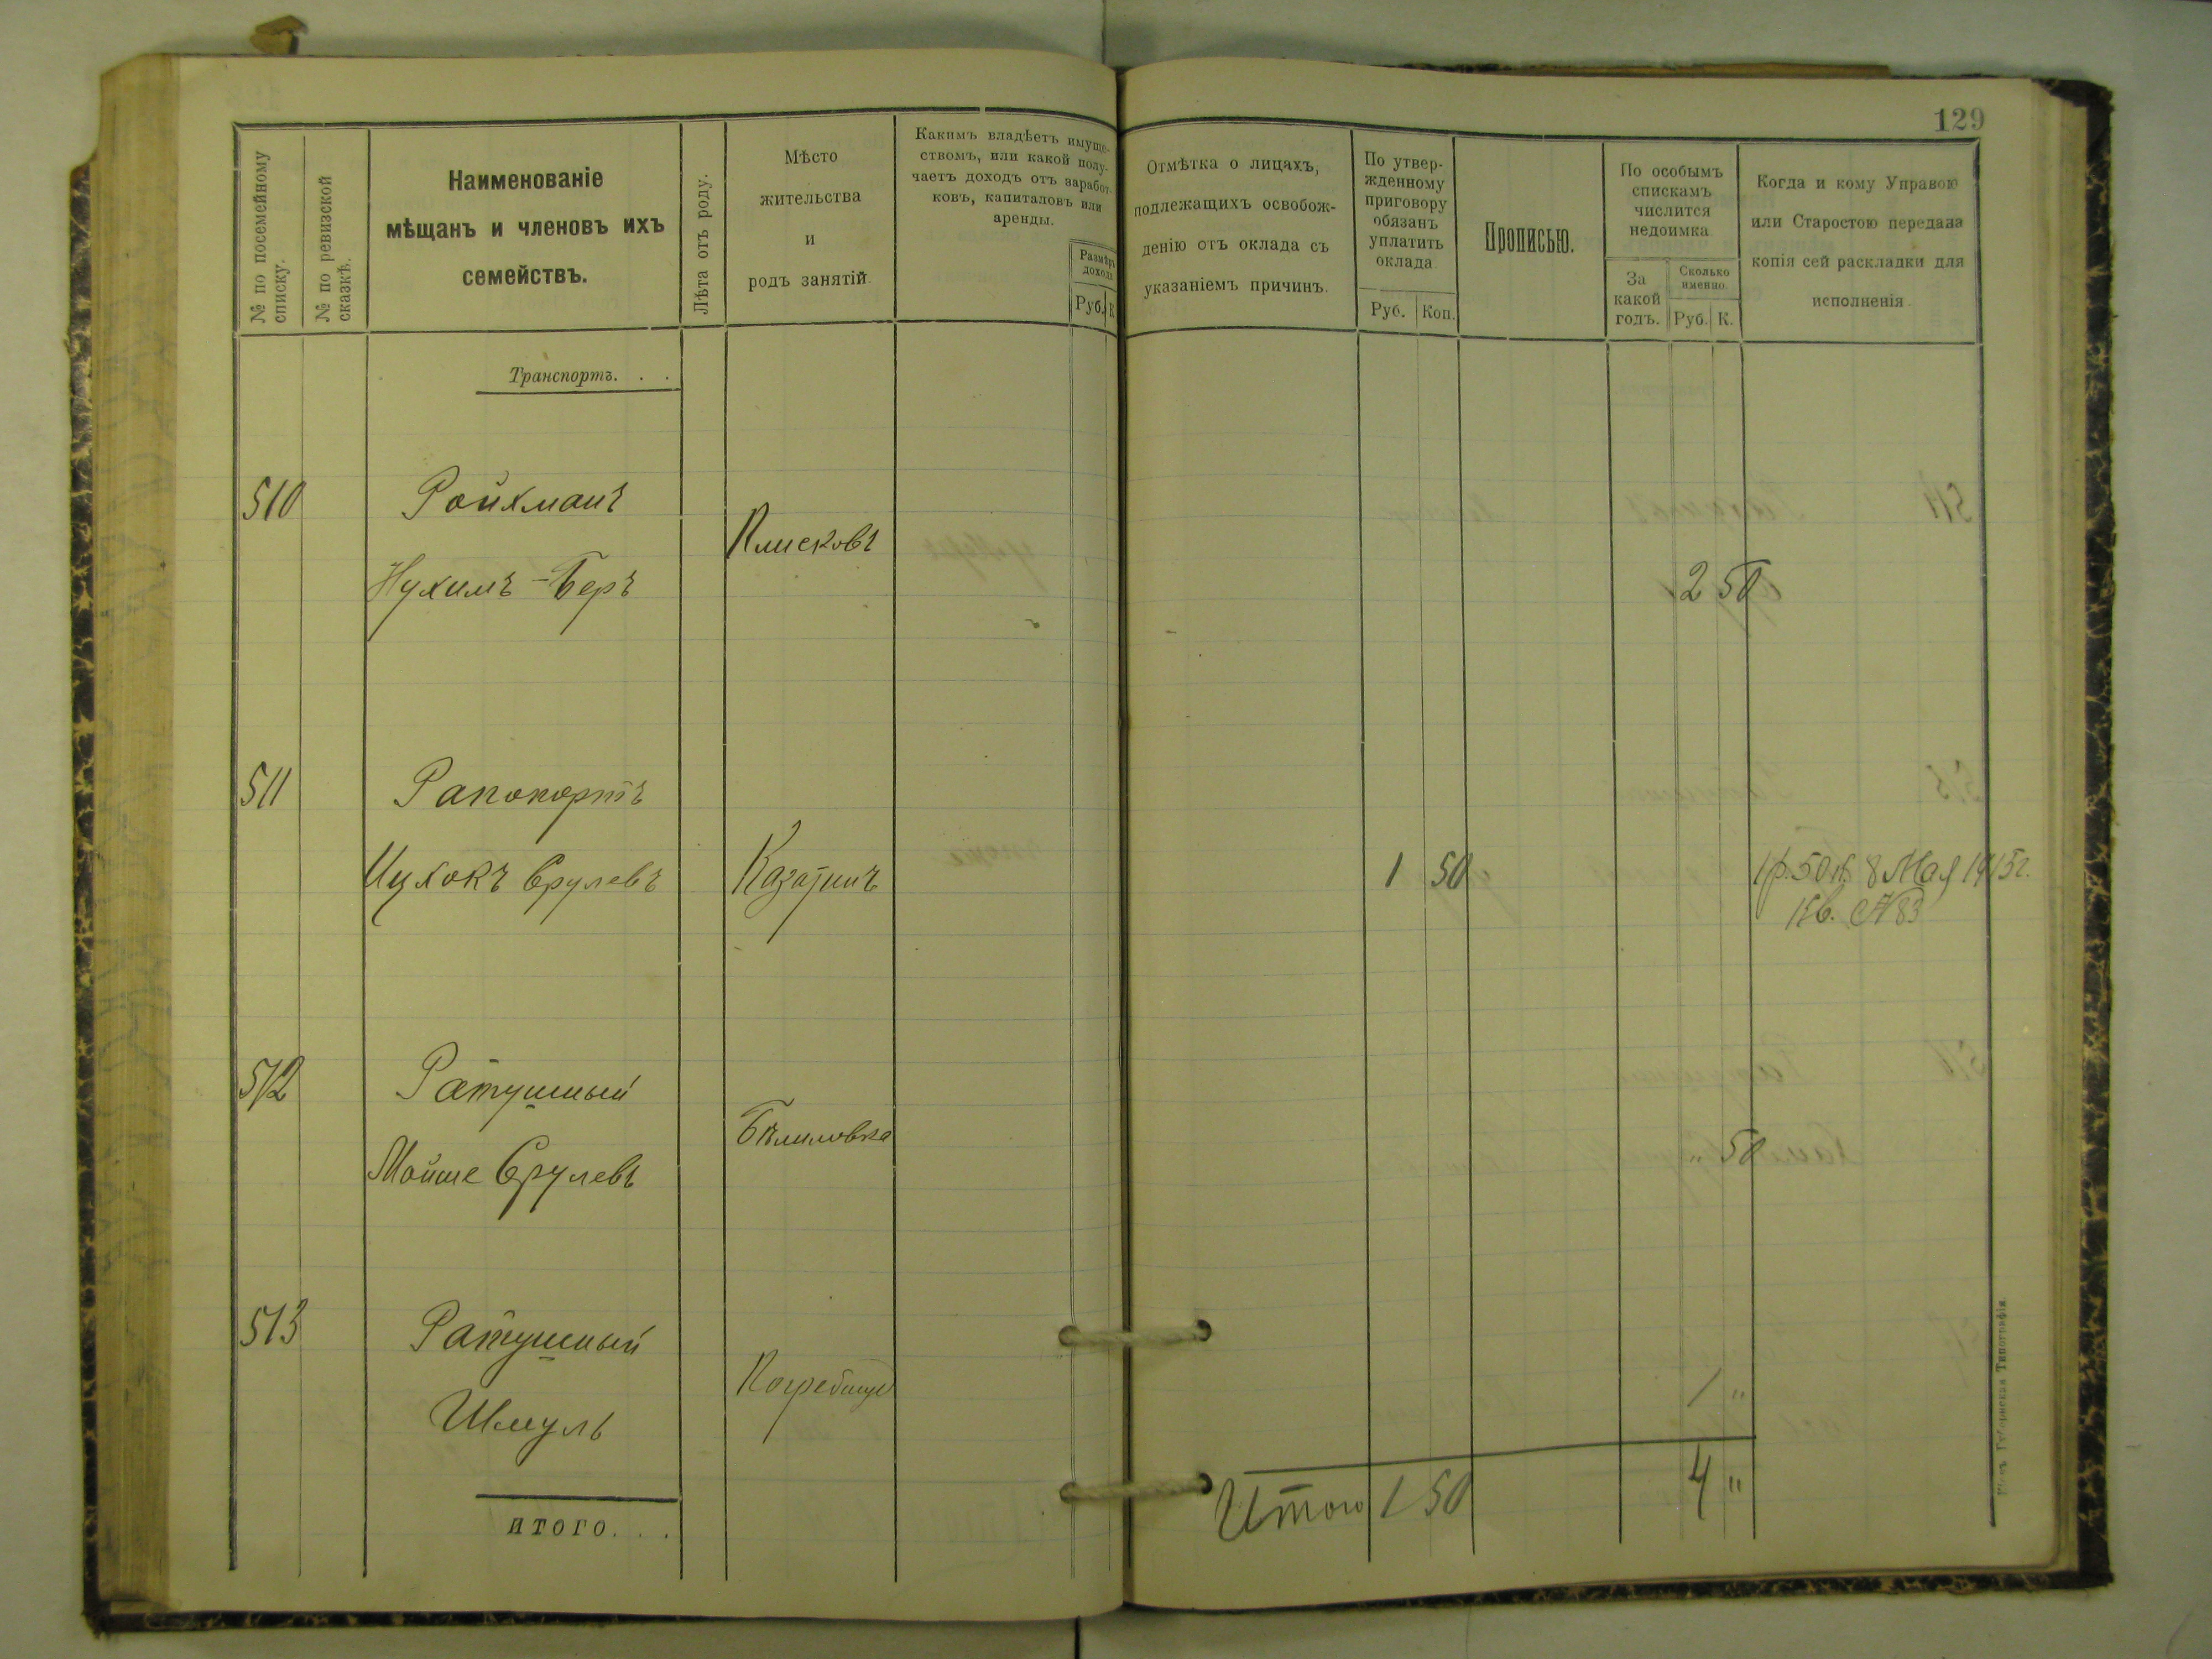 129
№ по посемейному
списку.
№ по ревизской
сказкѣ.
Наименованіе
мѣщанъ и членовъ ихъ
семействъ.
Лѣта отъ роду.
Мѣсто
жительства
и
родъ занятій.
Какимъ владѣетъ имуще-
ствомъ, или какой полу-
чаетъ доходъ отъ заработ-
ковъ, капиталовъ или
аренды.
Размѣръ
дохода
Руб. К
Отмѣтка о лицахъ,
подлежащихъ освобож-
денію отъ оклада съ
указаніемъ причинъ.
По утвер-
жденному
приговору
обязанъ
уплатить
оклада.
Руб. Коп.
Прописью.
По особымъ
спискамъ
числится
недоимка
За
какой
годъ.
Сколько
именно.
Руб. К.
Когда и кому Управою
или Старостою передана
копія сей раскладки для
исполненія.
Транспортъ. . .
510 Ройхманъ
Плисковъ
Нухимъ-Беръ 2 50
511 Рапопортъ
Ицхокъ Срулевъ Казатинъ 1 50 1р. 50к. 8 Мая 1915г.
Кв. № 83
512 Ратушный
Бѣлиловка
Мойше Срулевъ " 50
513 Ратушный
Погребище 1 "
Шмуль
Итого 1 50 4 "
ИТОГО. . .